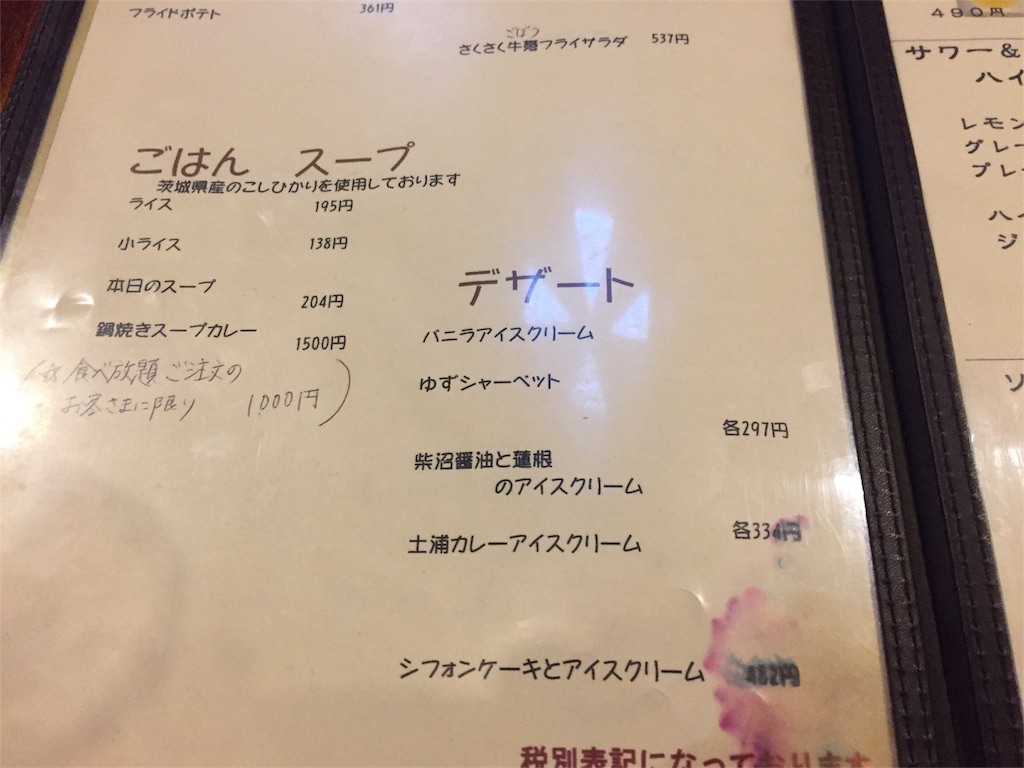 フライドポテト 361円
ごぼう
さくさく牛蒡フライサラダ 537円
ごはん スープ
茨城県産のこしひかりを使用しております
ライス 195円
小ライス 138円
本日のスープ 204円
鍋焼きスープカレー 1500円
食べ放題ご注文の
お客さまに限り 1,000円)
デザート
バニラアイスクリーム
ゆずシャーベット
各297円
柴沼醤油と蓮根
のアイスクリーム
各334円
土浦カレーアイスクリーム
シフォンケーキとアイスクリーム 482円
税別表記になっております
490円
サワー&
ハイ
レモン
グレー
プレー
ハイ
ジ
ソ